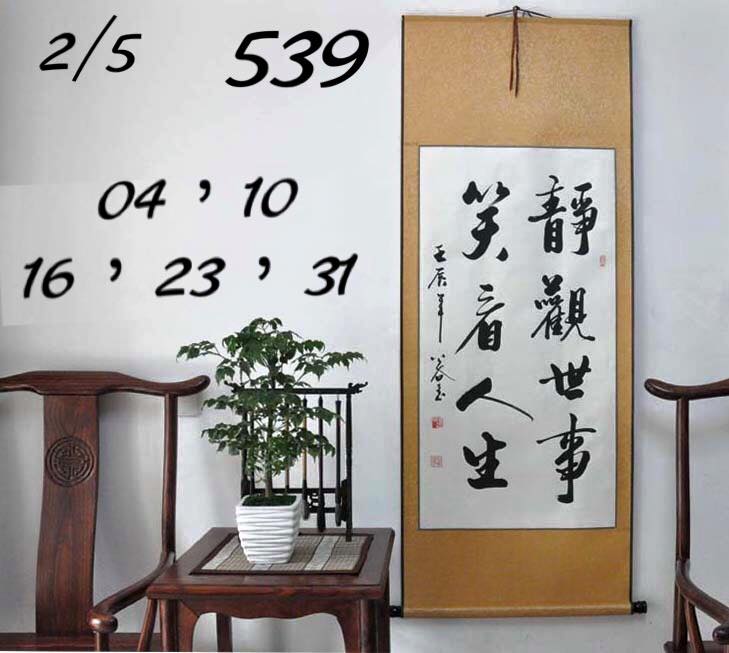 2/5 539
04，10
16，23，31
靜觀世事
笑看人生
壬辰年